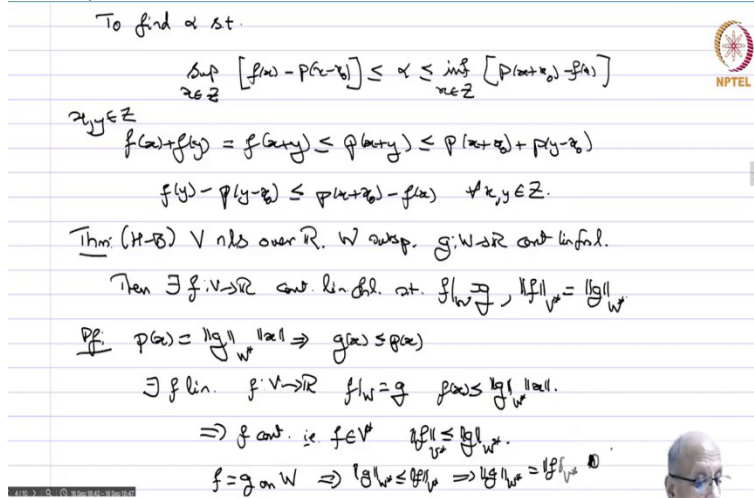 To find α st.
Sup x∈Z [f(x) - p(x-x₀)] ≤ α ≤ inf x∈Z [p(x+x₀) - f(x)]
NPTEL
x,y ∈ Z
f(x)+f(y) = f(x+y) ≤ p(x+y) ≤ p(x+x₀) + p(y-x₀)
f(y) - p(y-x₀) ≤ p(x+x₀) - f(x) ∀ x,y ∈ Z.
Thm: (H-B) V nls over ℝ. W subsp. g:W→ℝ cont lin fnl.
Then ∃ f:V→ℝ cont. lin fnl. st. f|_W = g, ‖f‖_V* = ‖g‖_W*.
Pf: p(x) = ‖g‖_W* ‖x‖ ⇒ g(x) ≤ p(x)
∃ f lin. f:V→ℝ f|_W = g f(x) ≤ ‖g‖_W* ‖x‖.
⇒ f cont. ie. f∈V* ‖f‖_V* ≤ ‖g‖_W*.
f = g on W ⇒ ‖g‖_W* ≤ ‖f‖_V* ⇒ ‖g‖_W* = ‖f‖_V*